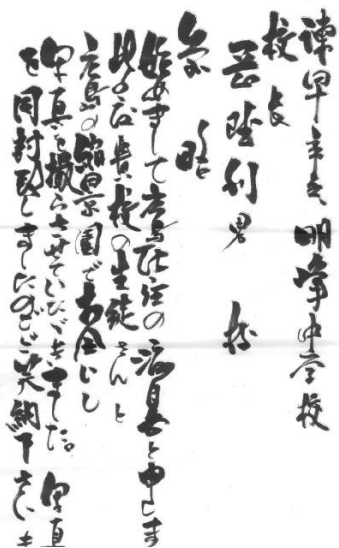 諫早市立明峰中学校
校長
利男 様
前略
始めまして広島在住の と申しま
此の度貴校の生徒さんと
広島の縮景園でお会いし
写真を撮らさせていただきました。写真
を同封致しましたのでご笑納下さいま